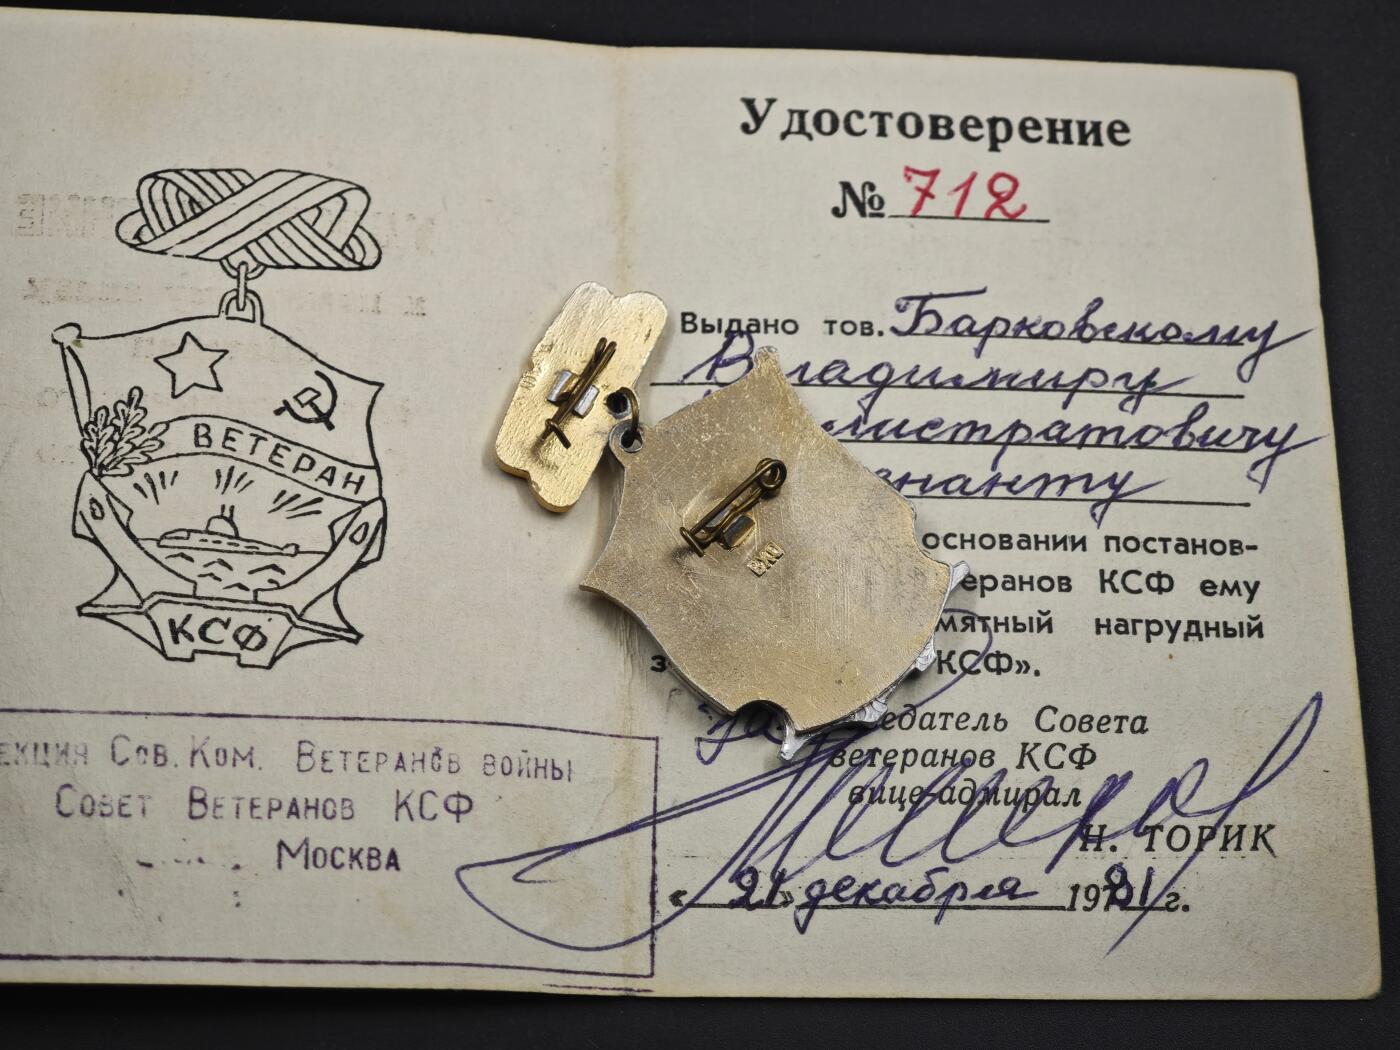 ВЕТЕРАН
КСФ
ЕКЦИЯ СОВ. КОМ. ВЕТЕРАНОВ ВОЙНЫ
СОВЕТ ВЕТЕРАНОВ КСФ
МОСКВА
Удостоверение
№ 712
Выдано тов. Барковскому
Владимиру
листратовичу
енанту
основании постанов-
еранов КСФ ему
мятный нагрудный
з КСФ».
едатель Совета
ветеранов КСФ
вице-адмирал
Н. ТОРИК
«21» декабря 1981 г.